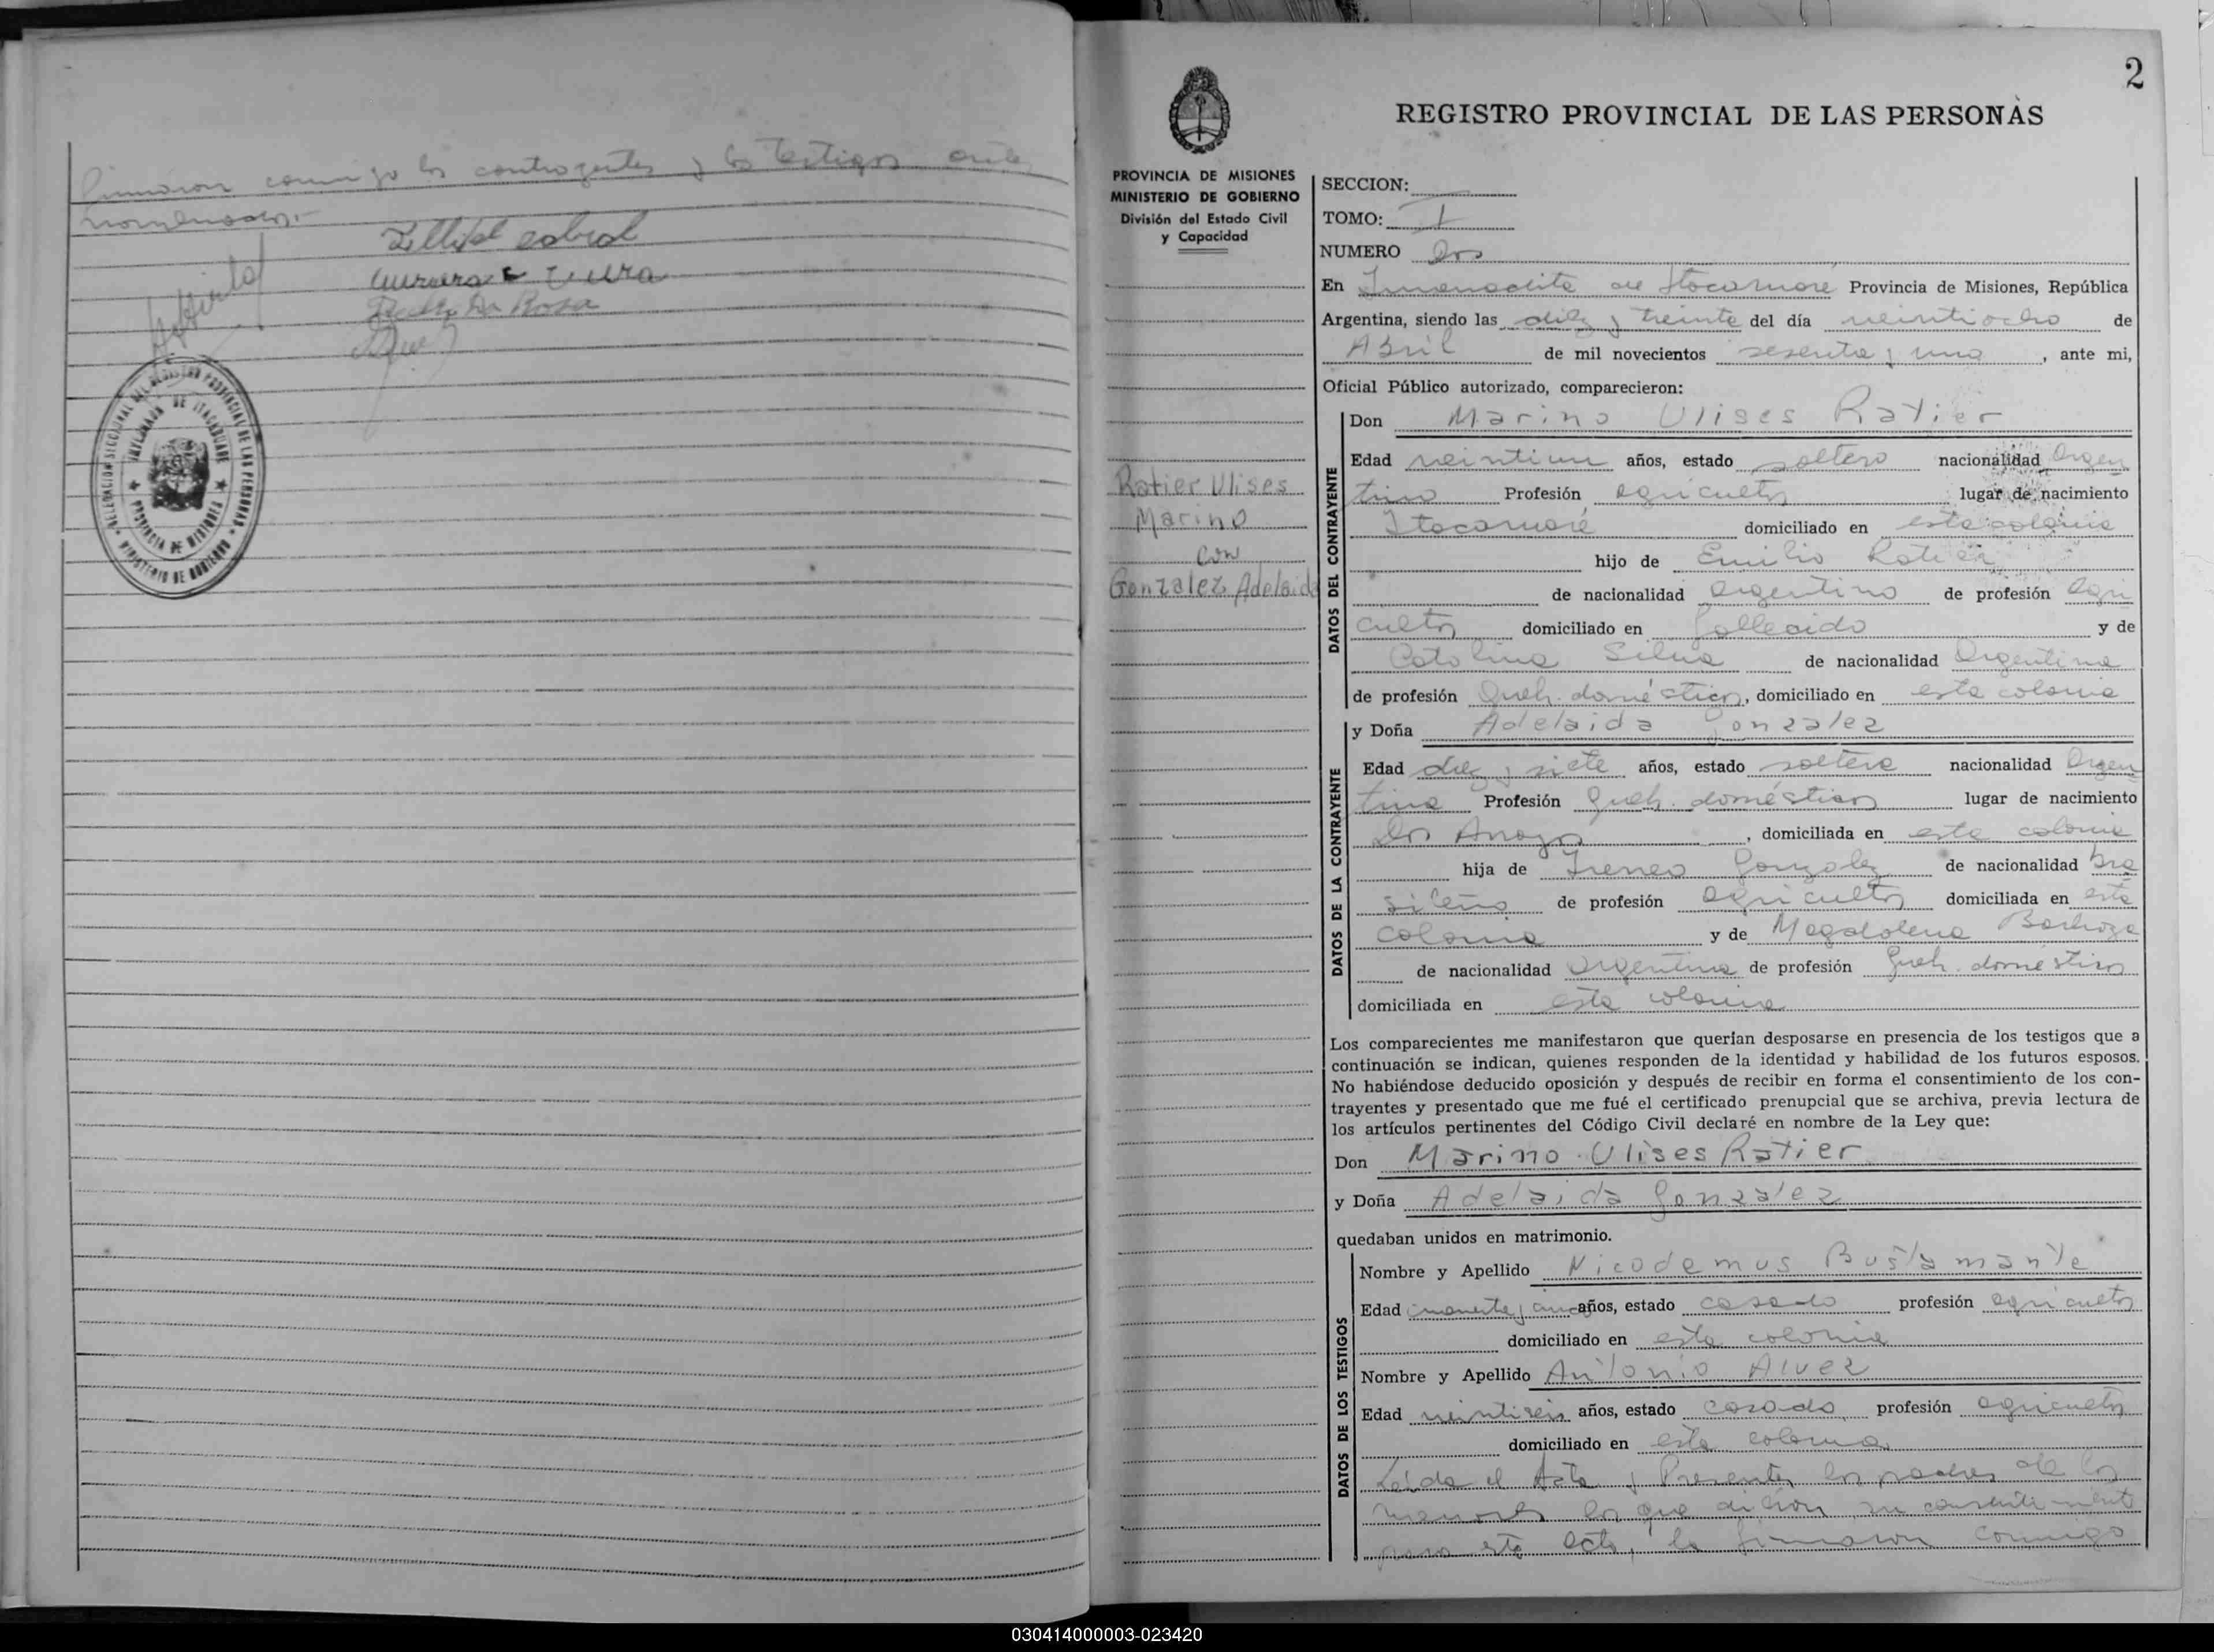 firmaron conmigo los contrayentes y los testigos ante
nombrados.-
DELEGACION SECCIONAL DEL REGISTRO PROVINCIAL DE LAS PERSONAS
MINISTERIO DE GOBIERNO
PROVINCIA DE MISIONES
2
REGISTRO PROVINCIAL DE LAS PERSONAS
PROVINCIA DE MISIONES
MINISTERIO DE GOBIERNO
División del Estado Civil
y Capacidad
Ratier Ulises
Marino
con
Gonzalez Adelaida
SECCION:
TOMO: I
NUMERO Dos
En Inmediata de Itacaruaré Provincia de Misiones, República
Argentina, siendo las diez y treinta del día veintiocho de
Abril de mil novecientos sesenta y uno, ante mi,
Oficial Público autorizado, comparecieron:
DATOS DEL CONTRAYENTE
Don Marino Ulises Ratier
Edad veintiun años, estado soltero nacionalidad Argen
tino Profesión agricultor lugar de nacimiento
Itacaruaré domiciliado en esta colonia
hijo de Emilio Ratier
de nacionalidad Argentino de profesión Agri
cultor domiciliado en fallecido y de
Catalina Silva de nacionalidad Argentina
de profesión Queh. domésticos, domiciliado en esta colonia
DATOS DE LA CONTRAYENTE
y Doña Adelaida Gonzalez
Edad diez y siete años, estado soltera nacionalidad Argen
tina Profesión Queh. domésticos lugar de nacimiento
Dos Arroyos, domiciliada en esta colonia
hija de Ireneo Gonzalez de nacionalidad bra
sileño de profesión Agricultor domiciliada en esta
colonia y de Magdalena Barboza
de nacionalidad Argentina de profesión Queh. domésticos
domiciliada en esta colonia
Los comparecientes me manifestaron que querían desposarse en presencia de los testigos que a
continuación se indican, quienes responden de la identidad y habilidad de los futuros esposos.
No habiéndose deducido oposición y después de recibir en forma el consentimiento de los con-
trayentes y presentado que me fué el certificado prenupcial que se archiva, previa lectura de
los artículos pertinentes del Código Civil declaré en nombre de la Ley que:
Don Marino Ulises Ratier
y Doña Adelaida Gonzalez
quedaban unidos en matrimonio.
DATOS DE LOS TESTIGOS
Nombre y Apellido Nicodemus Bustamante
Edad años, estado casado profesión agricultor
domiciliado en esta colonia
Nombre y Apellido Antonio Alvez
Edad veintiseis años, estado casado profesión agricultor
domiciliado en esta colonia
Leída el Acta y Presentes los padres de los
menores los que dieron su consentimiento
para este acto, la firmaron conmigo
030414000003-023420